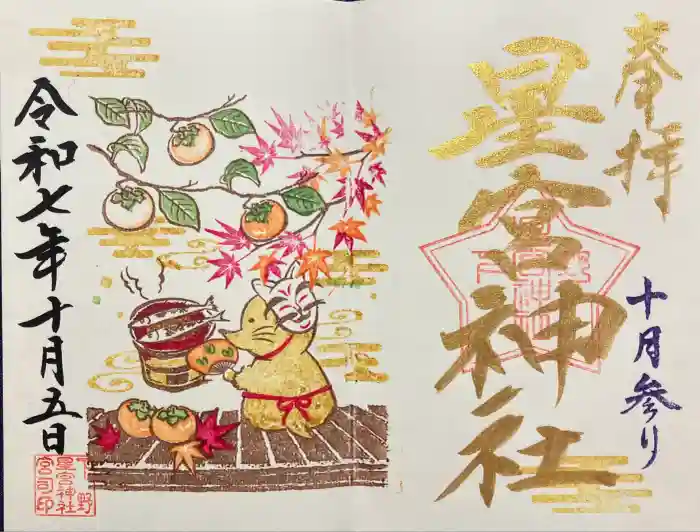 奉拝
星宮神社
十月参り
令和七年十月五日
下野
星宮神社
宮司印